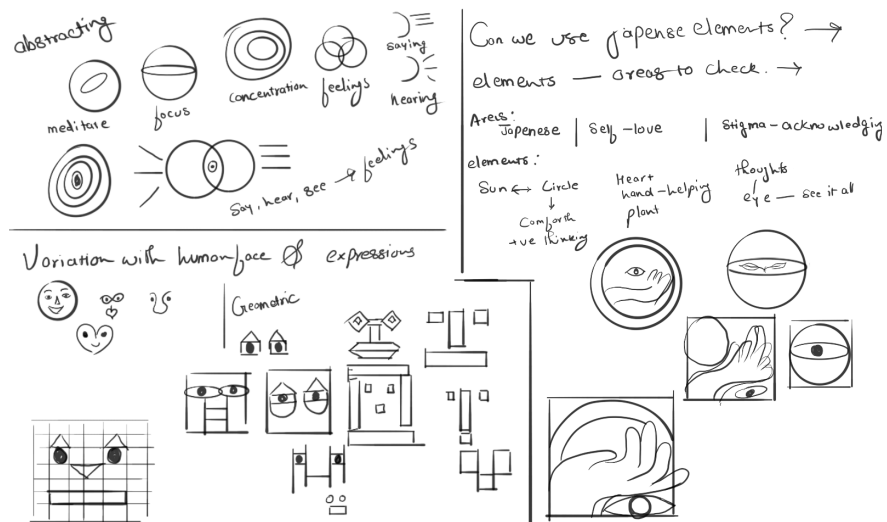 abstracting
meditate
focus
concentration
feelings
saying
hearing
Say, hear, see → feelings
Variation with human face & expressions
Geometric
Can we use japense elements? →
elements — areas to check. →
Areas:
Japenese | Self-love | Stigma-acknowledging
elements:
Sun ↔ Circle
↓
Comforth
+ve thinking
Heart
hand-helping
plant
thoughts
eye — see it all